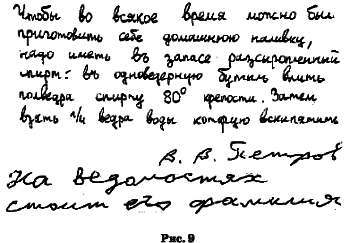 Чтобы во всякое время можно был
приготовить себе домашнюю наливку,
надо иметь въ запасе разсиропленный
спирт: въ одноведерную бутыль влить
полведра спирту 80° крепости. Затем
взять ¼ ведра воды которую вскипятить
В. В. Петров
На ведомостях
стоит его фамилия
Рис. 9